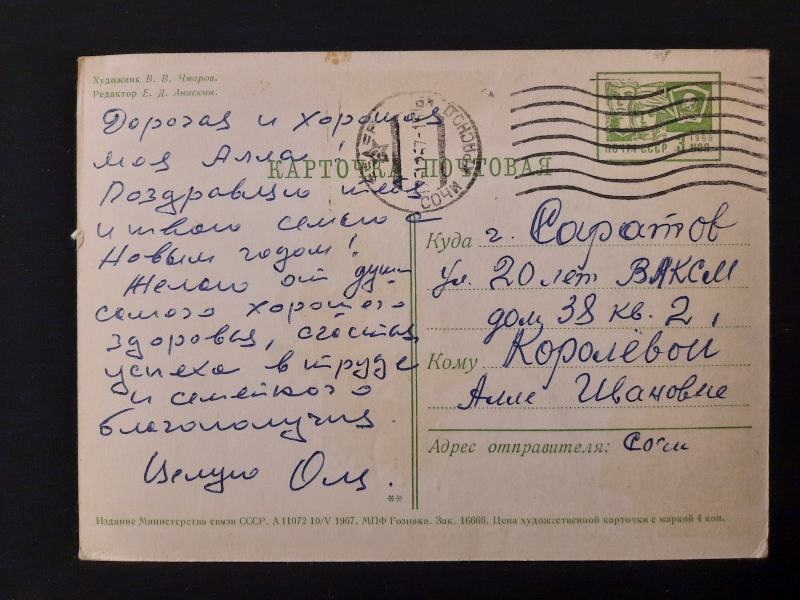 Художник В. В. Чмаров.
Редактор Е. Д. Анискин.
КАРТОЧКА ПОЧТОВАЯ
ПОЧТА СССР
1966
3 коп
СОЧИ
Дорогая и хорошая
моя Алла!
Поздравляю тебя
и твою семью с
Новым годом!
Желаю от души
самого хорошего
здоровья, счастья
успеха в труде
и семейного
благополучия.
Целую Оля.
Куда г. Саратов
ул. 20 лет ВЛКСМ
дом 38 кв. 2,
Кому Королёвой
Алле Ивановне
Адрес отправителя: Сочи
**
Издание Министерства связи СССР. А 11072 10/V 1967. МПФ Гознака. Зак. 16666. Цена художественной карточки с маркой 4 коп.